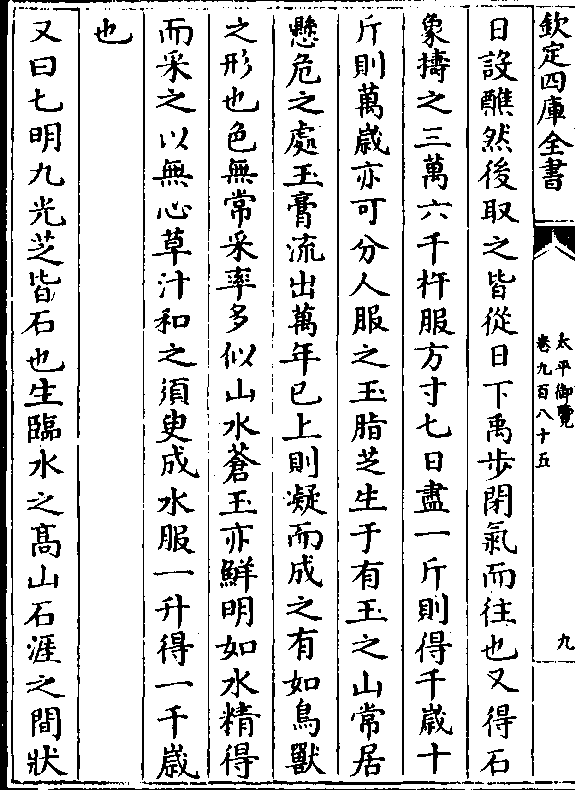 欽定四庫全書
太平御覽
卷九百八十五
九
日設醮然後取之皆從日下禹步閉氣而往也又得石
象擣之三萬六千杵服方寸七日盡一斤則得千歲十
斤則萬歲亦可分人服之玉脂芝生于有玉之山常居
懸危之處玉膏流出萬年已上則凝而成之有如鳥獸
之形也色無常采率多似山水蒼玉亦鮮明如水精得
而采之以無心草汁和之須臾成水服一升得一千歲
也
又曰七明九光芝皆石也生臨水之髙山石涯之間狀